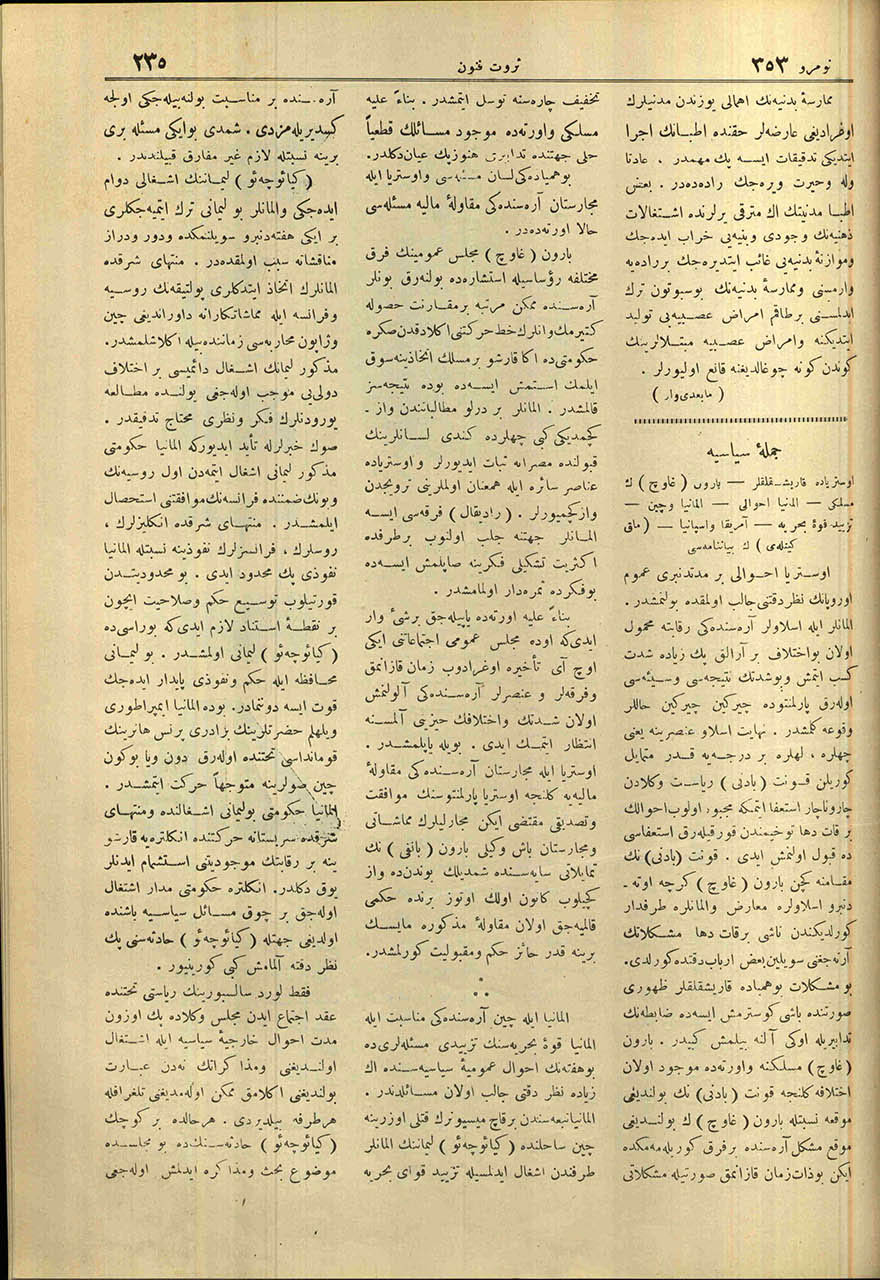 نومرو ٣٥٣
ثروت فنون
٢٣٥
ممارسهٔ بدنیه‌نك اهمالی یوزندن مدنیلرك
اوغرادیغی عارضه‌لر حقنده اطبانك اجرا
ایتدیكی تدقیقات ایسه پك مهمدر ، عادتا
وله وحیرت ویره‌جك راده‌ده‌در . بعض
اطبا مدنیتك اك مترقی یرلرنده اشتغالات
ذهنیه‌نك وجودی وبنیه‌یی خراب ایده‌جك
وموازنهٔ بدنیه‌یی غائب ایتدیره‌جك برراده‌یه
وارمسنی وممارسهٔ بدنیه‌نك بوسبوتون ترك
ایدلمسنی برطاقم امراض عصبیه‌یی تولید
ایتدیكنه وامراض عصبیه مبتلالرینك
كوندن كونه چوغالدیغنه قانع اولیورلر .
( مابعدی‌وار )
جملهٔ سیاسیه
اوستریاده قاریشقلقلر — بارون ( غاوچ ) ك
مسلكی — المانیا احوالی — المانیا وچین —
تزیید قوهٔ بحریه — آمریقا واسپانیا — ( ماق
كینله‌ی ) ك بیاننامه‌سی
اوستریا احوالی بر مدتدنبری عموم
اوروپانك نظردقتنی جالب اولمقده بولنمشدر .
المانلر ایله اسلاولر آره‌سنده‌كی رقابته محمول
اولان بواختلاف بر آرالق پك زیاده شدت
كسب ایتمش وبوشدتك نتیجه‌سی وسیئه‌سی
اوله‌رق پارلمنتوده چیركین چیركین حاللر
وقوعه كلمشدر . نهایت اسلاو عنصرینه یعنی
چهلره ، لهلره بر درجه‌یه قدر متمایل
كوریلن قونت ( بادنی ) ریاست وكلادن
چاروناچار استعفا ایتمكه مجبور اولوب‌احوالك
برقات دها توخیمندن قورقیله‌رق استعفاسی
ده قبول اولنمش ایدی . قونت (بادنی) نك
مقامنه كچن بارون ( غاوچ ) كرچه اوته‌ -
دنبرو اسلاولره معارض والمانلره طرفدار
كورلدیكندن ناشی برقات دها مشكلاتك
آرته‌جغنی سویلین‌بعض ارباب‌دقتده‌كورلدی.
بو مشكلات بوهمیاده قاریشقلقلر ظهوری
صورتنده باشی كوسترمش ایسه‌ده ضابطه‌نك
تدابیریله اوكی آلنه بیلمش كبیدر . بارون
(غاوچ) مسلكنه واورته‌ده موجود اولان
اختلافه كلنجه قونت (بادنی) نك بولندیغی
موقعه نسبتله بارون (غاوچ) ك بولندیغی
موقع مشكل آره‌سنده برفرق كوریله‌مه‌مكده
ایكن بوذات‌زمان قازانمق صورتیله مشكلاتی
تخفیف چاره‌سنه توسل ایتمشدر . بناءً علیه
مسلكی واورته‌ده موجود مسائلك قطعیاً
حلی جهتنده تدابیری هنوزپك عیان‌دكلدر.
بوهمیاده‌كی‌لسان مسئله‌سی واوستریا ایله
مجارستان آره‌سنده‌كی مقاولهٔ مالیه مسئله‌سی
حالا اورته‌ده‌در .
بارون ( غاوچ ) مجلس عمومینك فرق
مختلفه رؤساسیله استشاره‌ده بولنه‌رق بونلر
آره‌سنده ممكن مرتبه برمقارنت حصوله
كتیرمك‌وانلرك‌خط‌حركتنی‌اكلادقدن‌صكره
حكومتی‌ده اكا قارشو برمسلك اتخاذینه‌سوق
ایلمك استمش ایسه‌ده بوده نتیجه‌سز
قالمشدر . المانلر بر درلو مطالباتندن واز-
كچمدیكی كبی چهلرده كندی لسانلرینك
قبولنده مصرانه ثبات ایدیورلر و اوستریاده
عناصر سائره ایله همعنان اولملرینی ترویجدن
وازكچمیورلر . ( رادیقال ) فرقه‌سی ایسه
المانلر جهتنه جلب اولنوب برطرفده
اكثریت تشكیلی فكرینه صاپلمش ایسه‌ده
بوفكرده ثمره‌دار اولمامشدر .
بناءً علیه اورته‌ده یاپیله‌جق برشیٔ وار
ایدی‌كه اوده مجلس عمومی اجتماعاتنی ایكی
اوچ آی تأخیره اوغرادوب زمان قازانمق
وفرقه‌لر و عنصرلر آره‌سنده‌كی آلولنمش
اولان شدتك واختلافك حیزینی آلمسنه
انتظار ایتمك ایدی . بویله یاپلمشدر .
اوستریا ایله مجارستان آره‌سنده‌كی مقاولهٔ
مالیه‌یه كلنجه اوستریا پارلمنتوسنك موافقت
وتصدیقی مقتضی ایكن مجارلیلرك مماشاتی
ومجارستان باش وكیلی بارون ( بانفی ) نك
تمایلاتی سایه‌سنده شمدیلك بوندن‌ده واز
كچیلوب كانون اولك اوتوز برنده حكمی
قالمیه‌جق اولان مقاولهٔ مذكوره مایسك
برینه قدر حائز حكم ومقبولیت كورلمشدر.
المانیا ایله چین آره‌سنده‌كی مناسبت ایله
المانیا قوهٔ بحریه‌سنك تزییدی مسئله‌لری‌ده
بوهفته‌نك احوال عمومیهٔ سیاسیه‌سنده اك
زیاده نظر دقتی جالب اولان مسائلدندر .
المانیاتبعه‌سندن برقاچ میسیونرك قتلی اوزرینه
چین ساحلنده ( كیائوچه‌ئو ) لیماننك المانلر
طرفندن اشغال ایدلمسیله تزیید قوای بحریه
آره‌سنده بر مناسبت بولنه‌بیله‌جكی اولجه
كسدیریله‌مزدی . شمدی بوایكی مسئله بری
برینه نسبتله لازم غیر مفارق قبیلندندر .
( كیائوچه‌ئو ) لیماننك اشغالی دوام
ایده‌جكی والمانلر بو لیمانی ترك ایتمیه‌جكلری
بر ایكی هفته‌دنبرو سویلنمكده ودور ودراز
مناقشاته سبب اولمقده‌در . منتهای شرقده
المانلرك اتخاذ ایتدكلری پولتیقه‌نك روسیه
وفرانسه ایله مماشاتكارانه داوراندیغی چین
وژاپون محاربه‌سی زماننده‌بیله اكلاشلمشدر.
مذكور لیمانك اشغال دائمیسی بر اختلاف
دولی‌یی موجب اوله‌جغی یولنده مطالعه
یورودنلرك فكر ونظری محتاج تدقیقدر .
صوك خبرلرله تأید ایدیوركه المانیا حكومتی
مذكور لیمانی اشغال ایتمه‌دن اول روسیه‌نك
وبونك‌ضمننده فرانسه‌نك‌موافقتنی استحصال
ایلمشدر . منتهای شرقده انكلیزلرك ،
روسلرك ، فرانسزلرك نفوذینه نسبتله المانیا
نفوذی پك محدود ایدی . بو محدودیتدن
قورتیلوب توسیع حكم وصلاحیت ایچون
بر نقطهٔ استناد لازم ایدی‌كه بوراسی‌ده
( كیائوچه‌ئو ) لیمانی اولمشدر . بو لیمانی
محافظه ایله حكم ونفوذی پایدار ایده‌جك
قوت ایسه دوننمادر. بوده المانیا ایمپراطوری
ویلهلم حضرتلرینك برادری پرنس هانرینك
قومانداسی تحتنده اوله‌رق دون ویا بوكون
چین صولرینه متوجهاً حركت ایتمشدر .
المانیا حكومتی بولیمانی اشغالنده ومنتهای
شرقده سربستانه حركتنده انكلتره‌یه قارشو
ینه بر رقابتك موجودیتنی استشمام ایدنلر
یوق دكلدر. انكلتره حكومتی مدار اشتغال
اوله‌جق بر چوق مسائل سیاسیه باشنده
اولدیغی جهتله ( كیائوچه‌ئو ) حادثه‌سنی پك
نظر دقته آلمامش كبی كورینیور .
فقط لورد سالسبورینك ریاستی تحتنده
عقد اجتماع ایدن مجلس وكلاده پك اوزون
مدت احوال خارجیهٔ سیاسیه ایله اشتغال
اولندیغی ومذاكراتك نه‌دن عبارت
بولندیغنی اكلامق ممكن اوله‌مدیغنی تلغرافله
هرطرفه بیلدیردی . هرحالده بر كوچك
( كیائوچه‌ئو ) حادثه‌سنك‌ده بو مجلسده
موضوع بحث ومذاكره ایدلمش اوله‌جغی